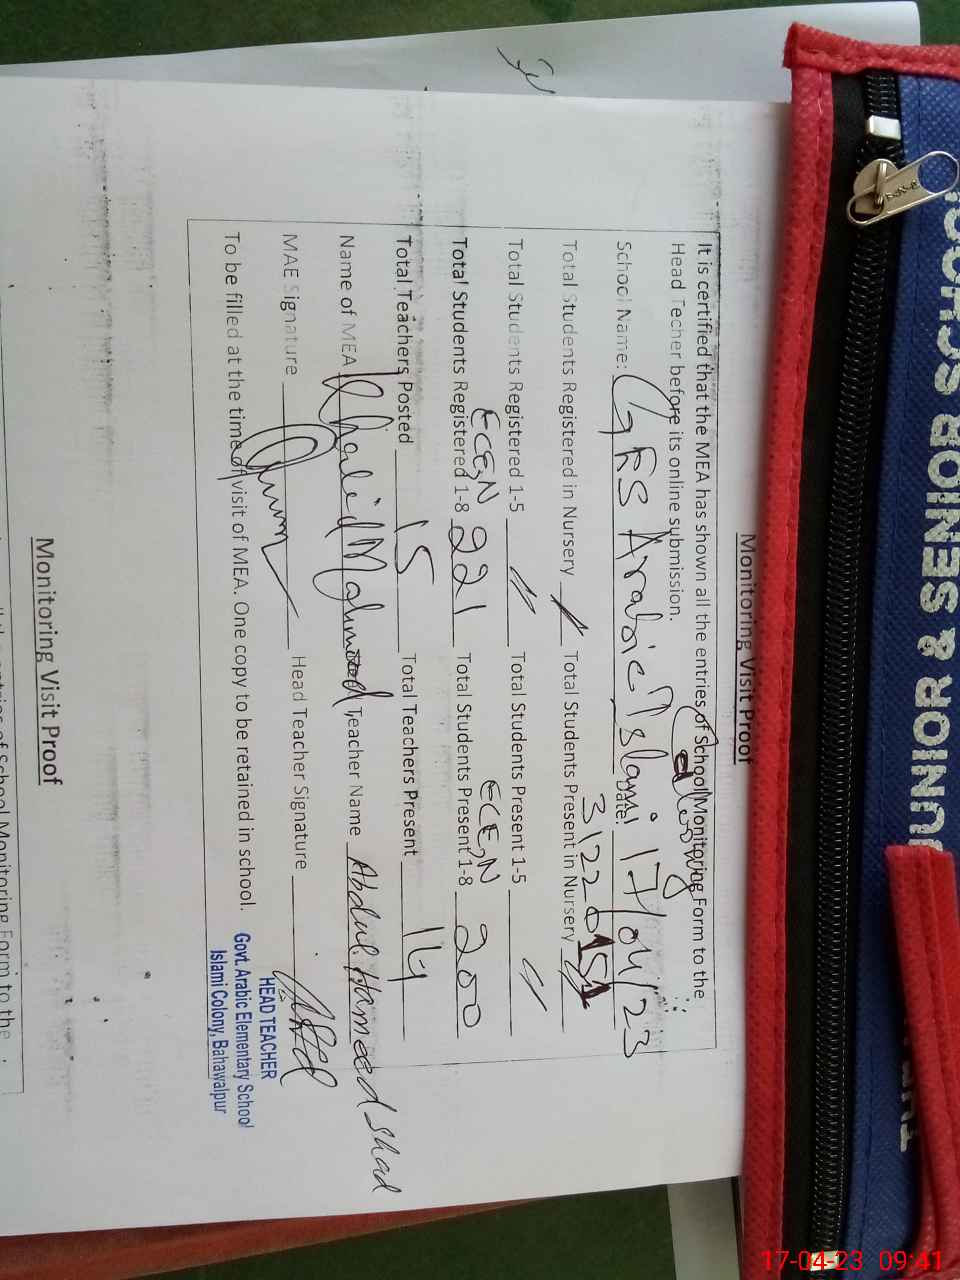 Monitoring Visit Proof
It is certified that the MEA has shown all the entries of School Monitoring Form to the
Head Techer before its online submission.
School Name: GES Arabic Islami Colony Date: 17/04/23
31220151
Total Students Registered in Nursery Total Students Present in Nursery
Total Students Registered 1-5 〃 Total Students Present 1-5 〃
ECE,N ECE,N
Total Students Registered 1-8 221 Total Students Present 1-8 200
Total Teachers Posted 15 Total Teachers Present 14
Name of MEA Khalid Mahmood Teacher Name Abdul Hameed Shad
MAE Signature Head Teacher Signature
To be filled at the time of visit of MEA. One copy to be retained in school.
HEAD TEACHER
Govt. Arabic Elementary School
Islami Colony, Bahawalpur
Monitoring Visit Proof
all the entries of School Monitoring Form to the
JUNIOR & SENIOR
17-04-23 09:41